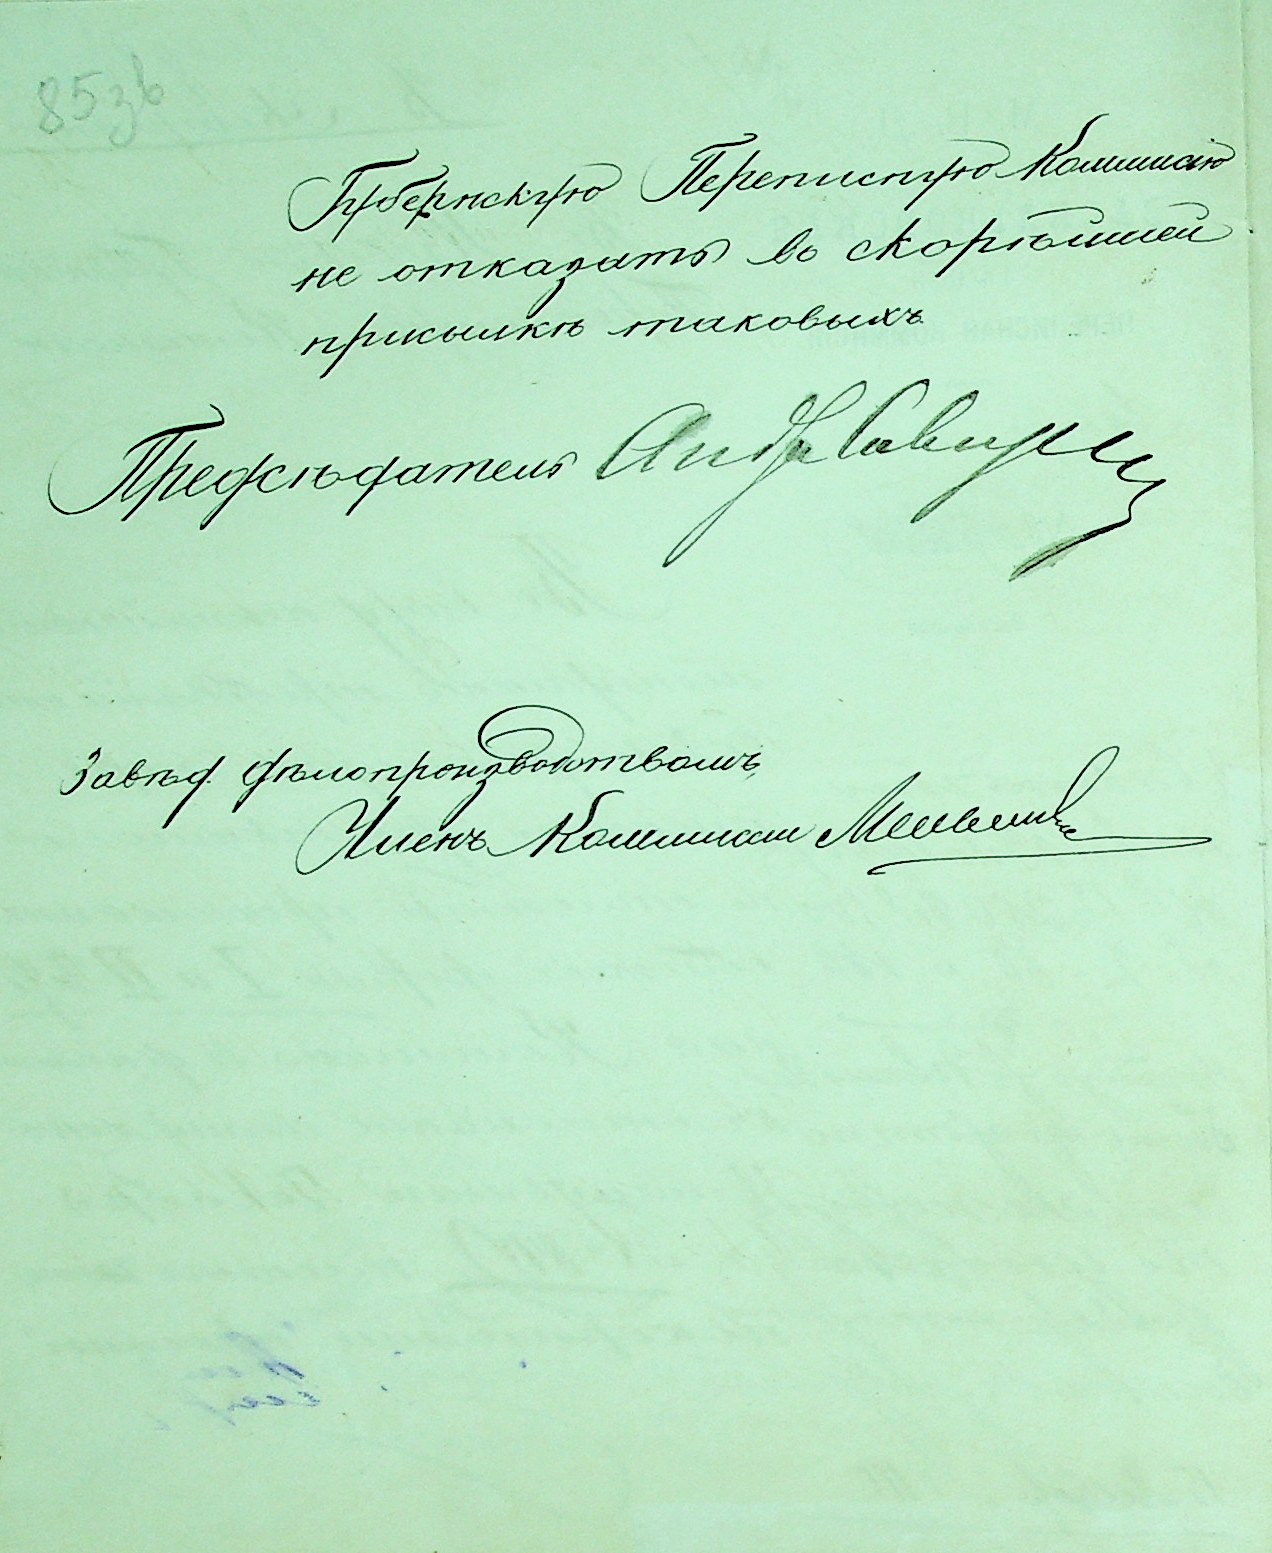 85зв
Губернскую Переписную Коммисію
не отказать въ скорѣйшей
присылкѣ таковыхъ
Предсѣдатель
Завѣд. дѣлопроизводствомъ,
Членъ Коммисіи